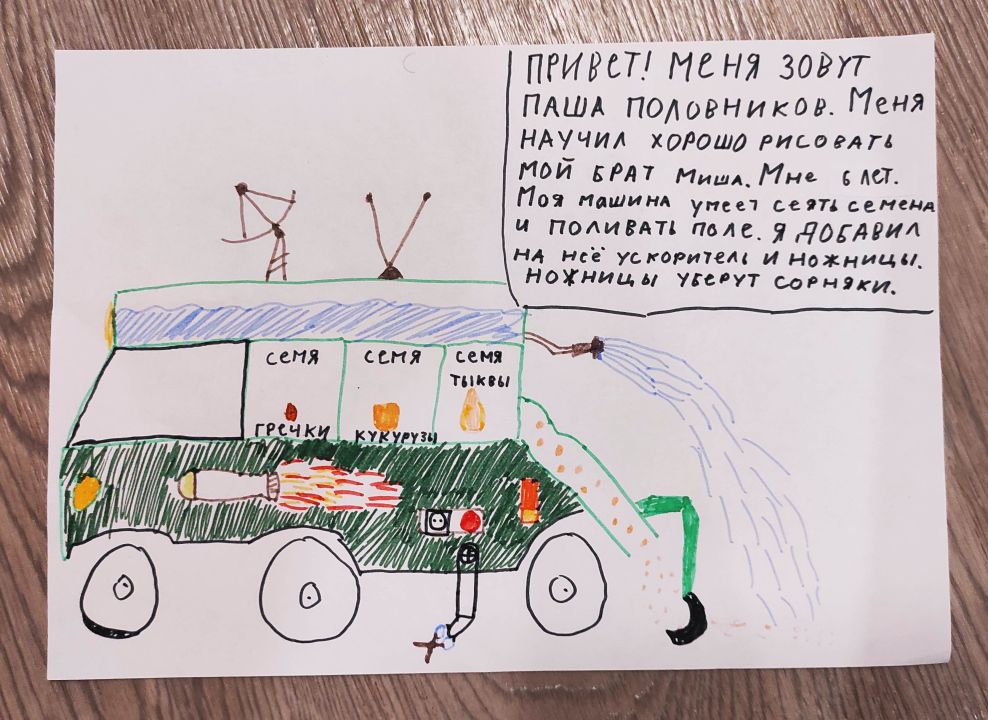 ПРИВЕТ! МЕНЯ ЗОВУТ
ПАША ПОЛОВНИКОВ. МЕНЯ
НАУЧИЛ ХОРОШО РИСОВАТЬ
МОЙ БРАТ МИША. МНЕ 6 ЛЕТ.
МОЯ МАШИНА УМЕЕТ СЕЯТЬ СЕМЕНА
И ПОЛИВАТЬ ПОЛЕ. Я ДОБАВИЛ
НА НЕЁ УСКОРИТЕЛЬ И НОЖНИЦЫ.
НОЖНИЦЫ УБЕРУТ СОРНЯКИ.
СЕМЯ
ГРЕЧКИ
СЕМЯ
КУКУРУЗЫ
СЕМЯ
ТЫКВЫ